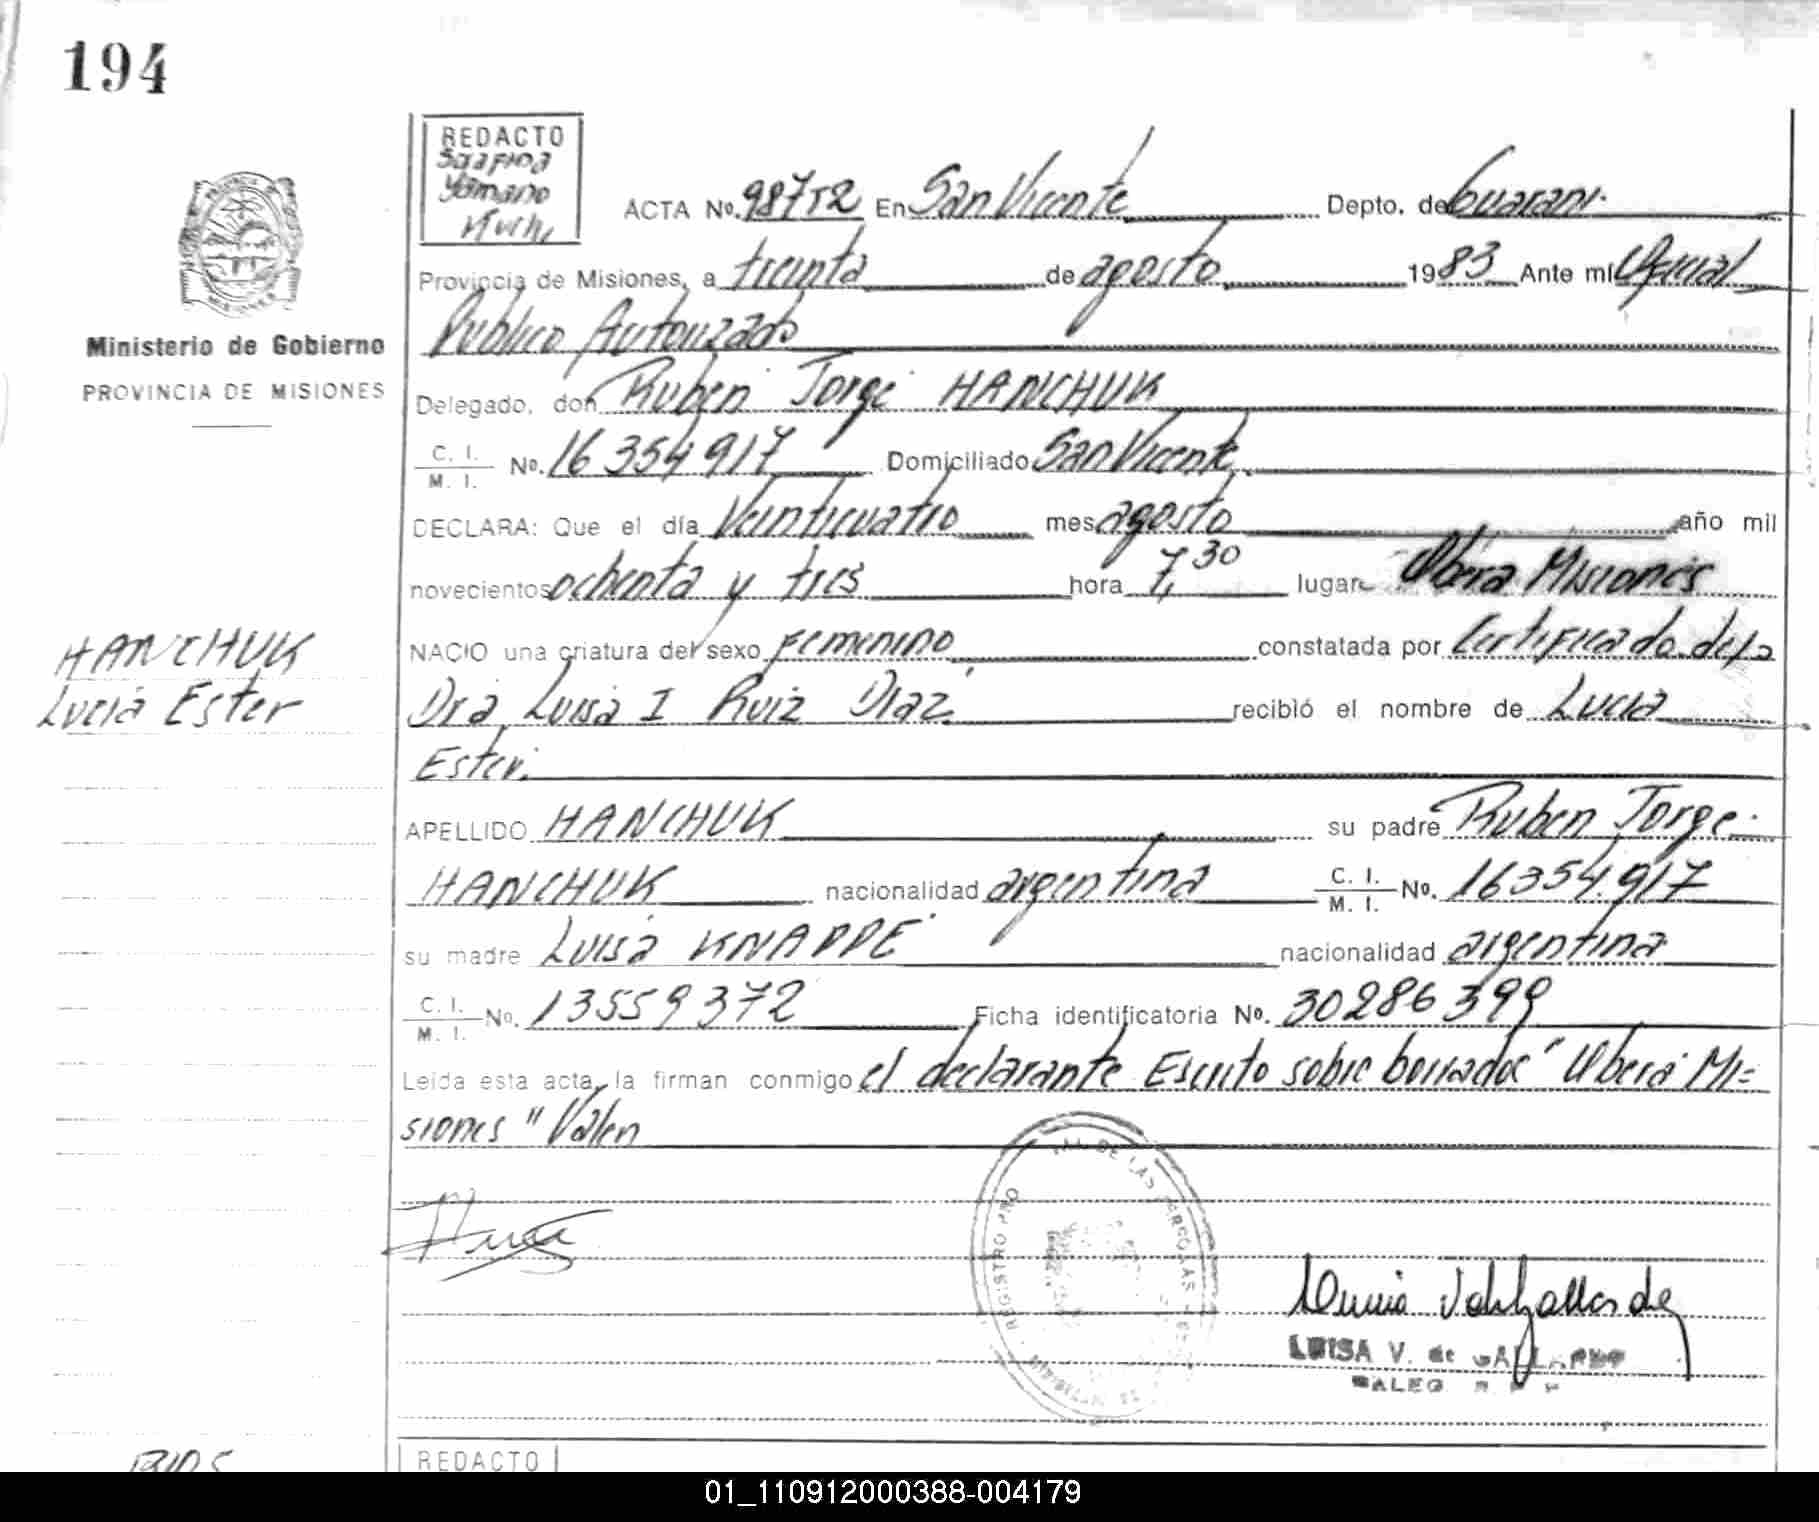 194
REDACTO
ACTA No. 98752 En San Vicente Depto. de Guarani.
Provincia de Misiones, a treinta de agosto 1983 Ante mí Oficial
Publico Autorizado
Ministerio de Gobierno
PROVINCIA DE MISIONES
Delegado, don Ruben Jorge HANCHUK
C. I.
M. I. No. 16354917 Domiciliado San Vicente
DECLARA: Que el día Veinticuatro mes agosto año mil
novecientos ochenta y tres hora 7,30 lugar Obera Misiones
NACIO una criatura del sexo femenino constatada por Certificado de la
Dra Luisa I Ruiz Diaz recibió el nombre de Lucia
Ester.
HANCHUK
Lucia Ester
APELLIDO HANCHUK su padre Ruben Jorge
HANCHUK nacionalidad argentina C. I.
M. I. No. 16354.917
su madre Luisa KNAPPE nacionalidad argentina
C. I.
M. I. No. 13559372 Ficha identificatoria No. 30286399
Leída esta acta, la firman conmigo el declarante Escrito sobre borrados "Obera Mi=
siones" Valen
REGISTRO DE LAS
LUISA V. de GALLARDO
REDACTO
01_110912000388-004179